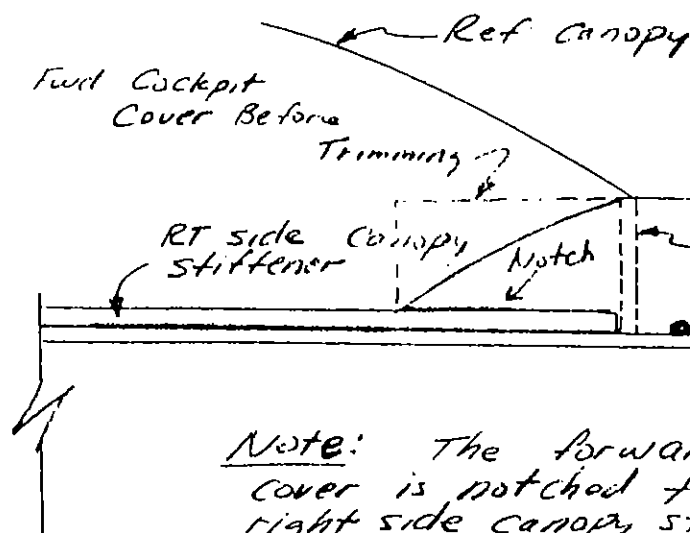 Ref Canopy
Fwd Cockpit
Cover Before
Trimming
RT side Canopy
stiffener
Notch
Note: The forwar
cover is notched t
right side canopy st